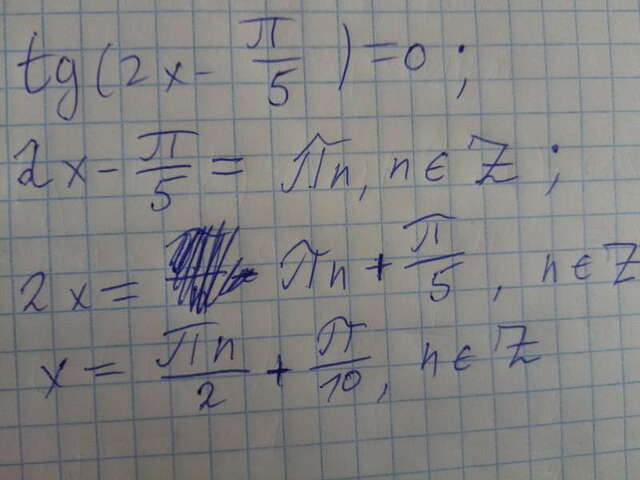 tg(2x - π/5) = 0;
2x - π/5 = πn, n ∈ Z;
2x = πn + π/5, n ∈ Z
x = πn/2 + π/10, n ∈ Z